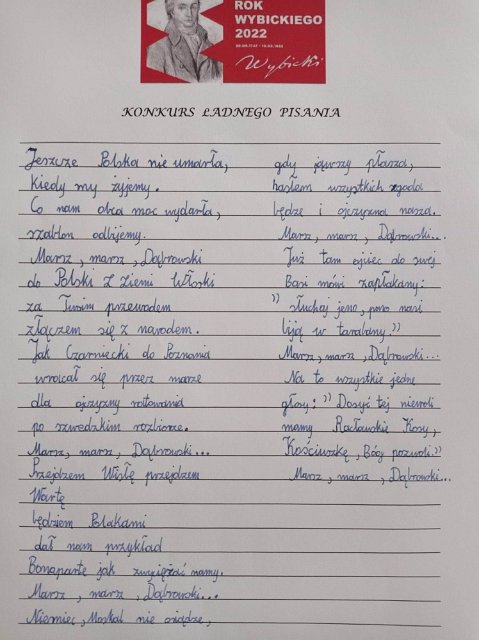 ROK
WYBICKIEGO
2022
Wybicki
KONKURS ŁADNEGO PISANIA
Jeszcze Polska nie umarła,
Kiedy my żyjemy.
Co nam obca moc wydarła,
szablon odbijemy.
Marsz, marsz, Dąbrowski
do Polski Z Ziemi Włoski
za Twoim przewodem
złączem się z narodem.
Jak Czarniecki do Poznania
wracał się przez marze
dla ojczyzny ratowania
po szwedzkim rozbiorze.
Marsz, marsz, Dąbrowski...
Przejdzem Wisłę przejdzem
Wartę
będziem Polakami
dał nam przykład
Bonaparte jak zwyciężać namy.
Marsz, marsz, Dąbrowski...
Niemiec, Moskal nie osiądze,
gdy jąwszy płasza,
hasłem wszystkich zgoda
będze i ojczyzna nasza.
Marsz, marsz, Dąbrowski...
Już tam ojciec do swej
Basi mówi zapłakany:
"słuchaj jeno, pono nasi
biją w tarabany."
Marsz, marsz, Dąbrowski...
Na to wszystkie jedne
głosy: "Dosyć tej niewoli
mamy Racławskie Kosy,
Kościuszkę, Bóg pozwoli."
Marsz, marsz, Dąbrowski...